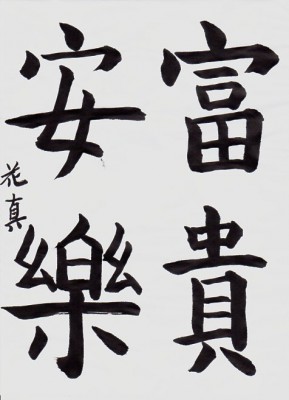 富貴
安樂
花真